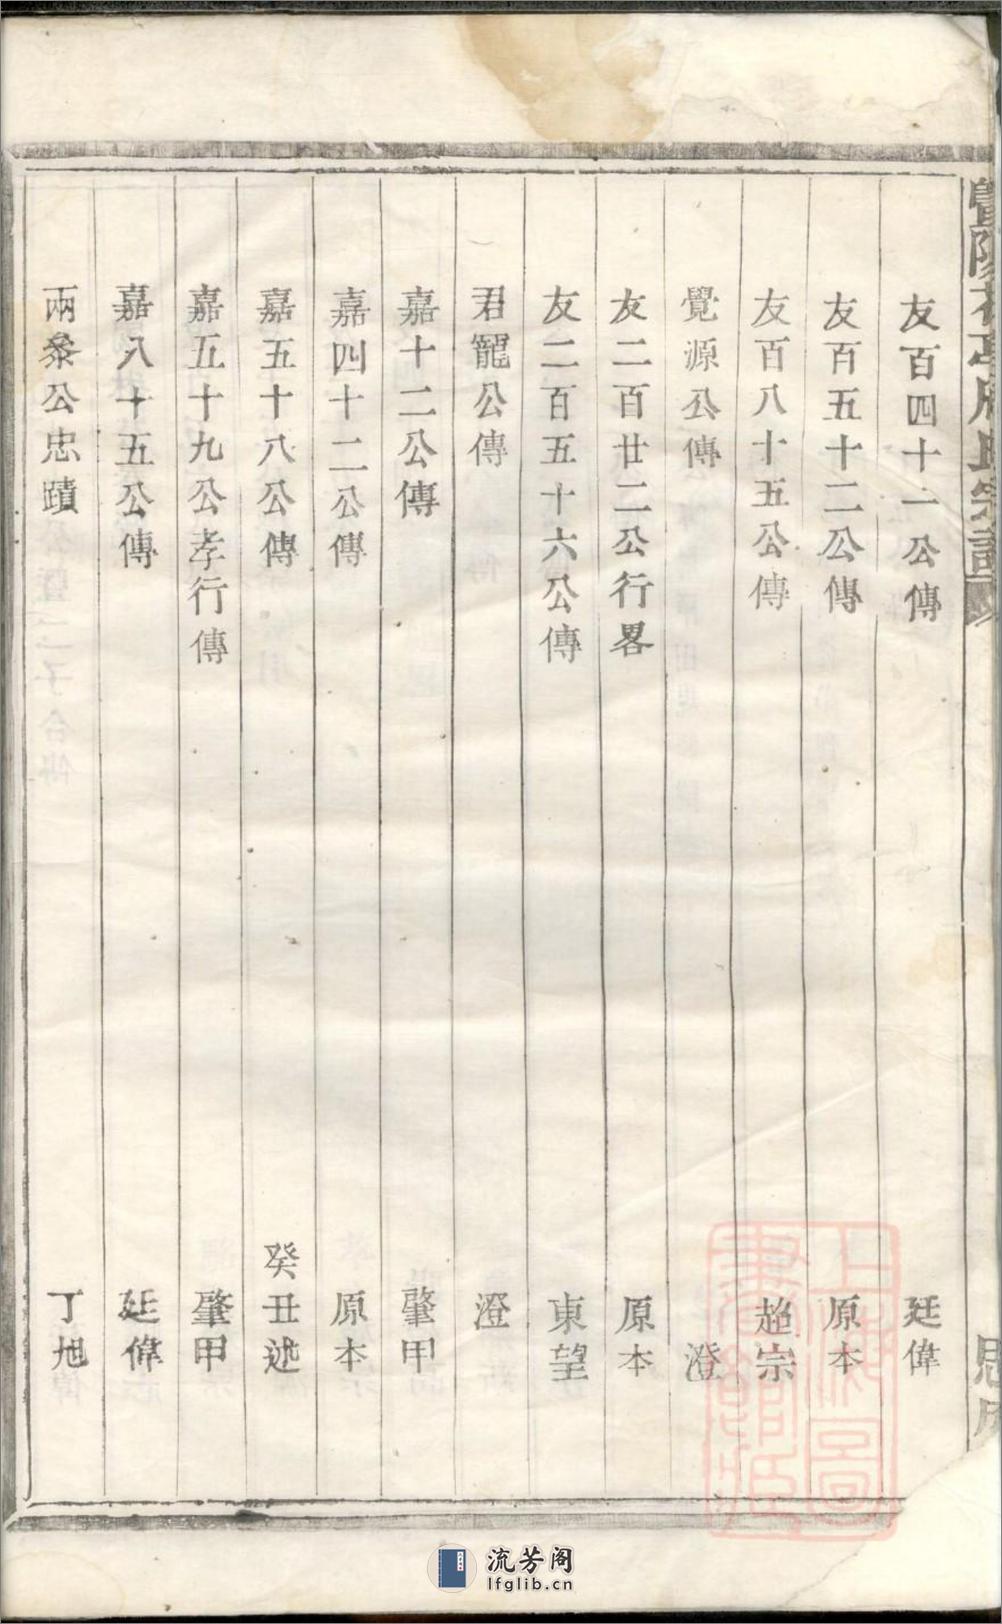 暨陽花亭周氏宗譜
思
友百四十一公傳 廷偉
友百五十二公傳 原本
友百八十五公傳 超宗
覺源公傳 澄
友二百廿二公行畧 原本
友二百五十六公傳 東望
君寵公傳 澄
嘉十二公傳 肇甲
嘉四十二公傳 原本
嘉五十八公傳 癸丑述
嘉五十九公孝行傳 肇甲
嘉八十五公傳 廷偉
兩桼公忠蹟 丁旭
上海圖書館藏
流芳阁
lfglib.cn